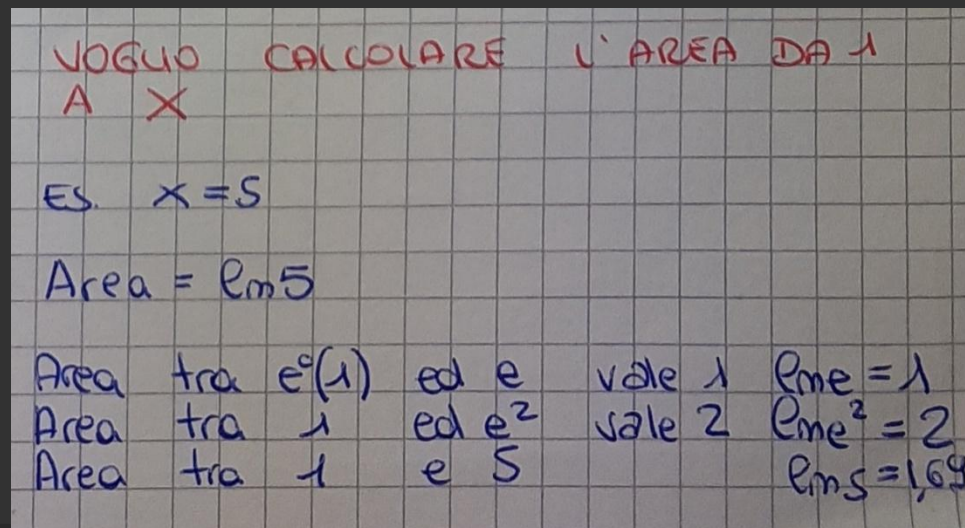 VOGLIO CALCOLARE L'AREA DA 1
A X
ES. x = 5
Area = ln 5
Area tra e⁰(1) ed e vale 1 ln e = 1
Area tra 1 ed e² vale 2 ln e² = 2
Area tra 1 e 5 ln 5 = 1,69